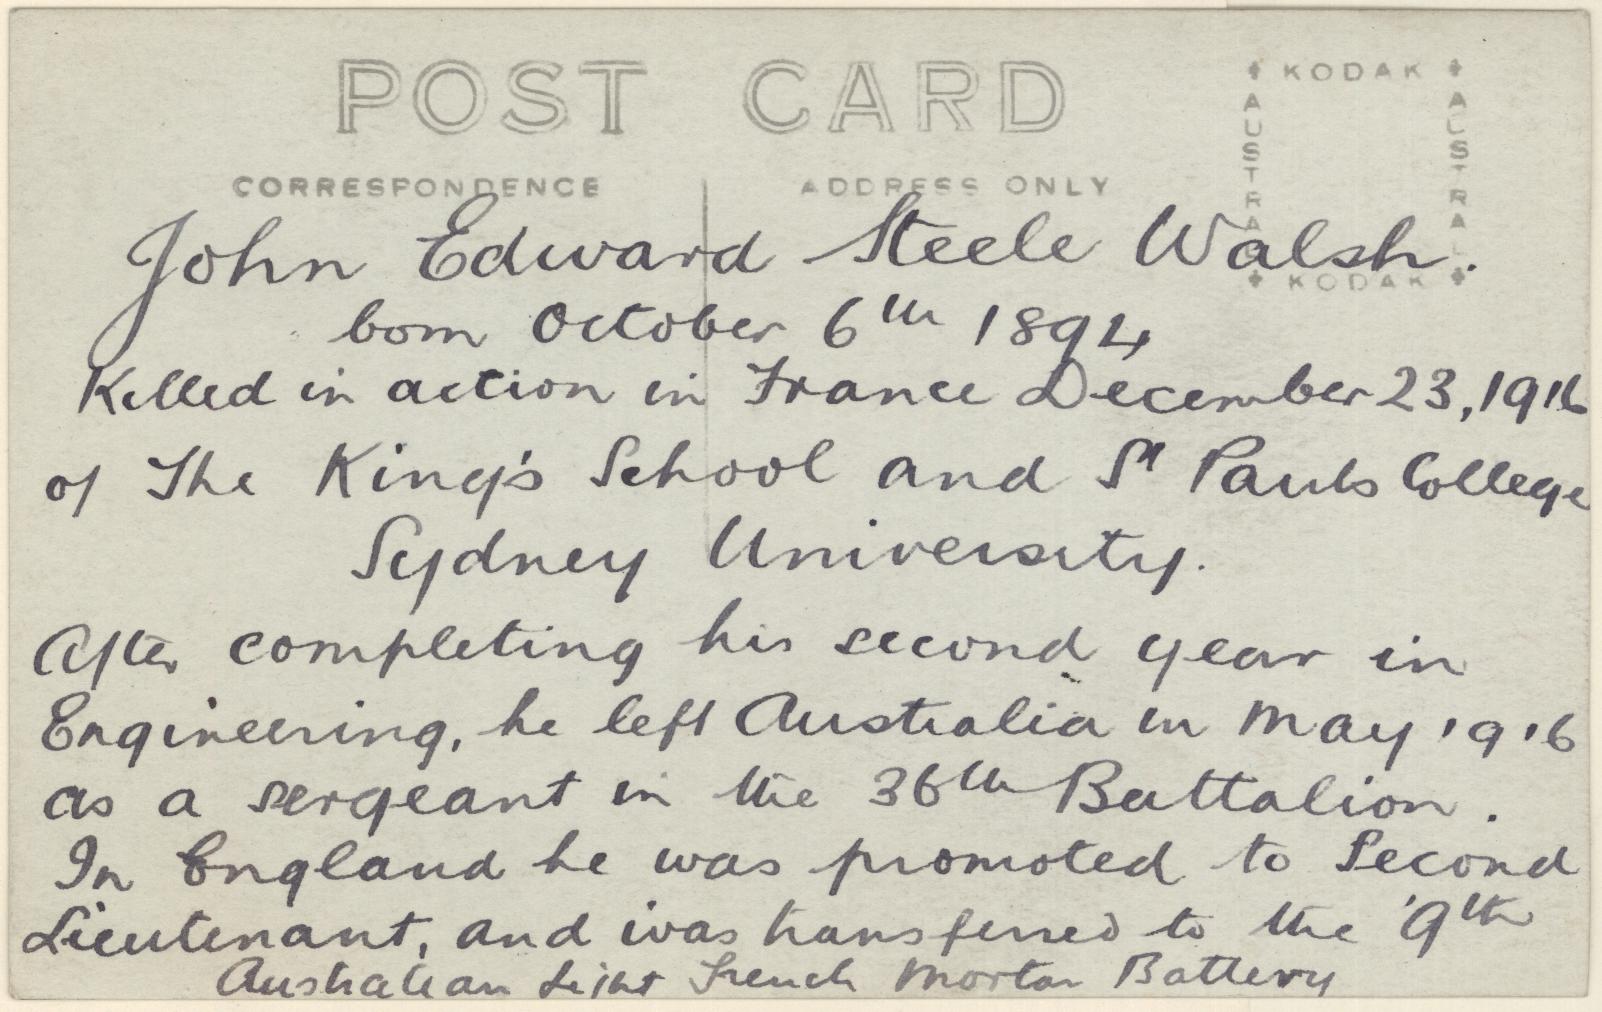 POST CARD
KODAK
AUSTRALIA
AUSTRAL
KODAK
CORRESPONDENCE
ADDRESS ONLY
John Edward Steele Walsh.
born October 6th 1894
Killed in action in France December 23, 1916
of The King's School and St Pauls College
Sydney University.
After completing his second year in
Engineering, he left Australia in May 1916
as a sergeant in the 36th Battalion.
In England he was promoted to Second
Lieutenant, and was transferred to the 9th
Australian Light Trench Mortar Battery